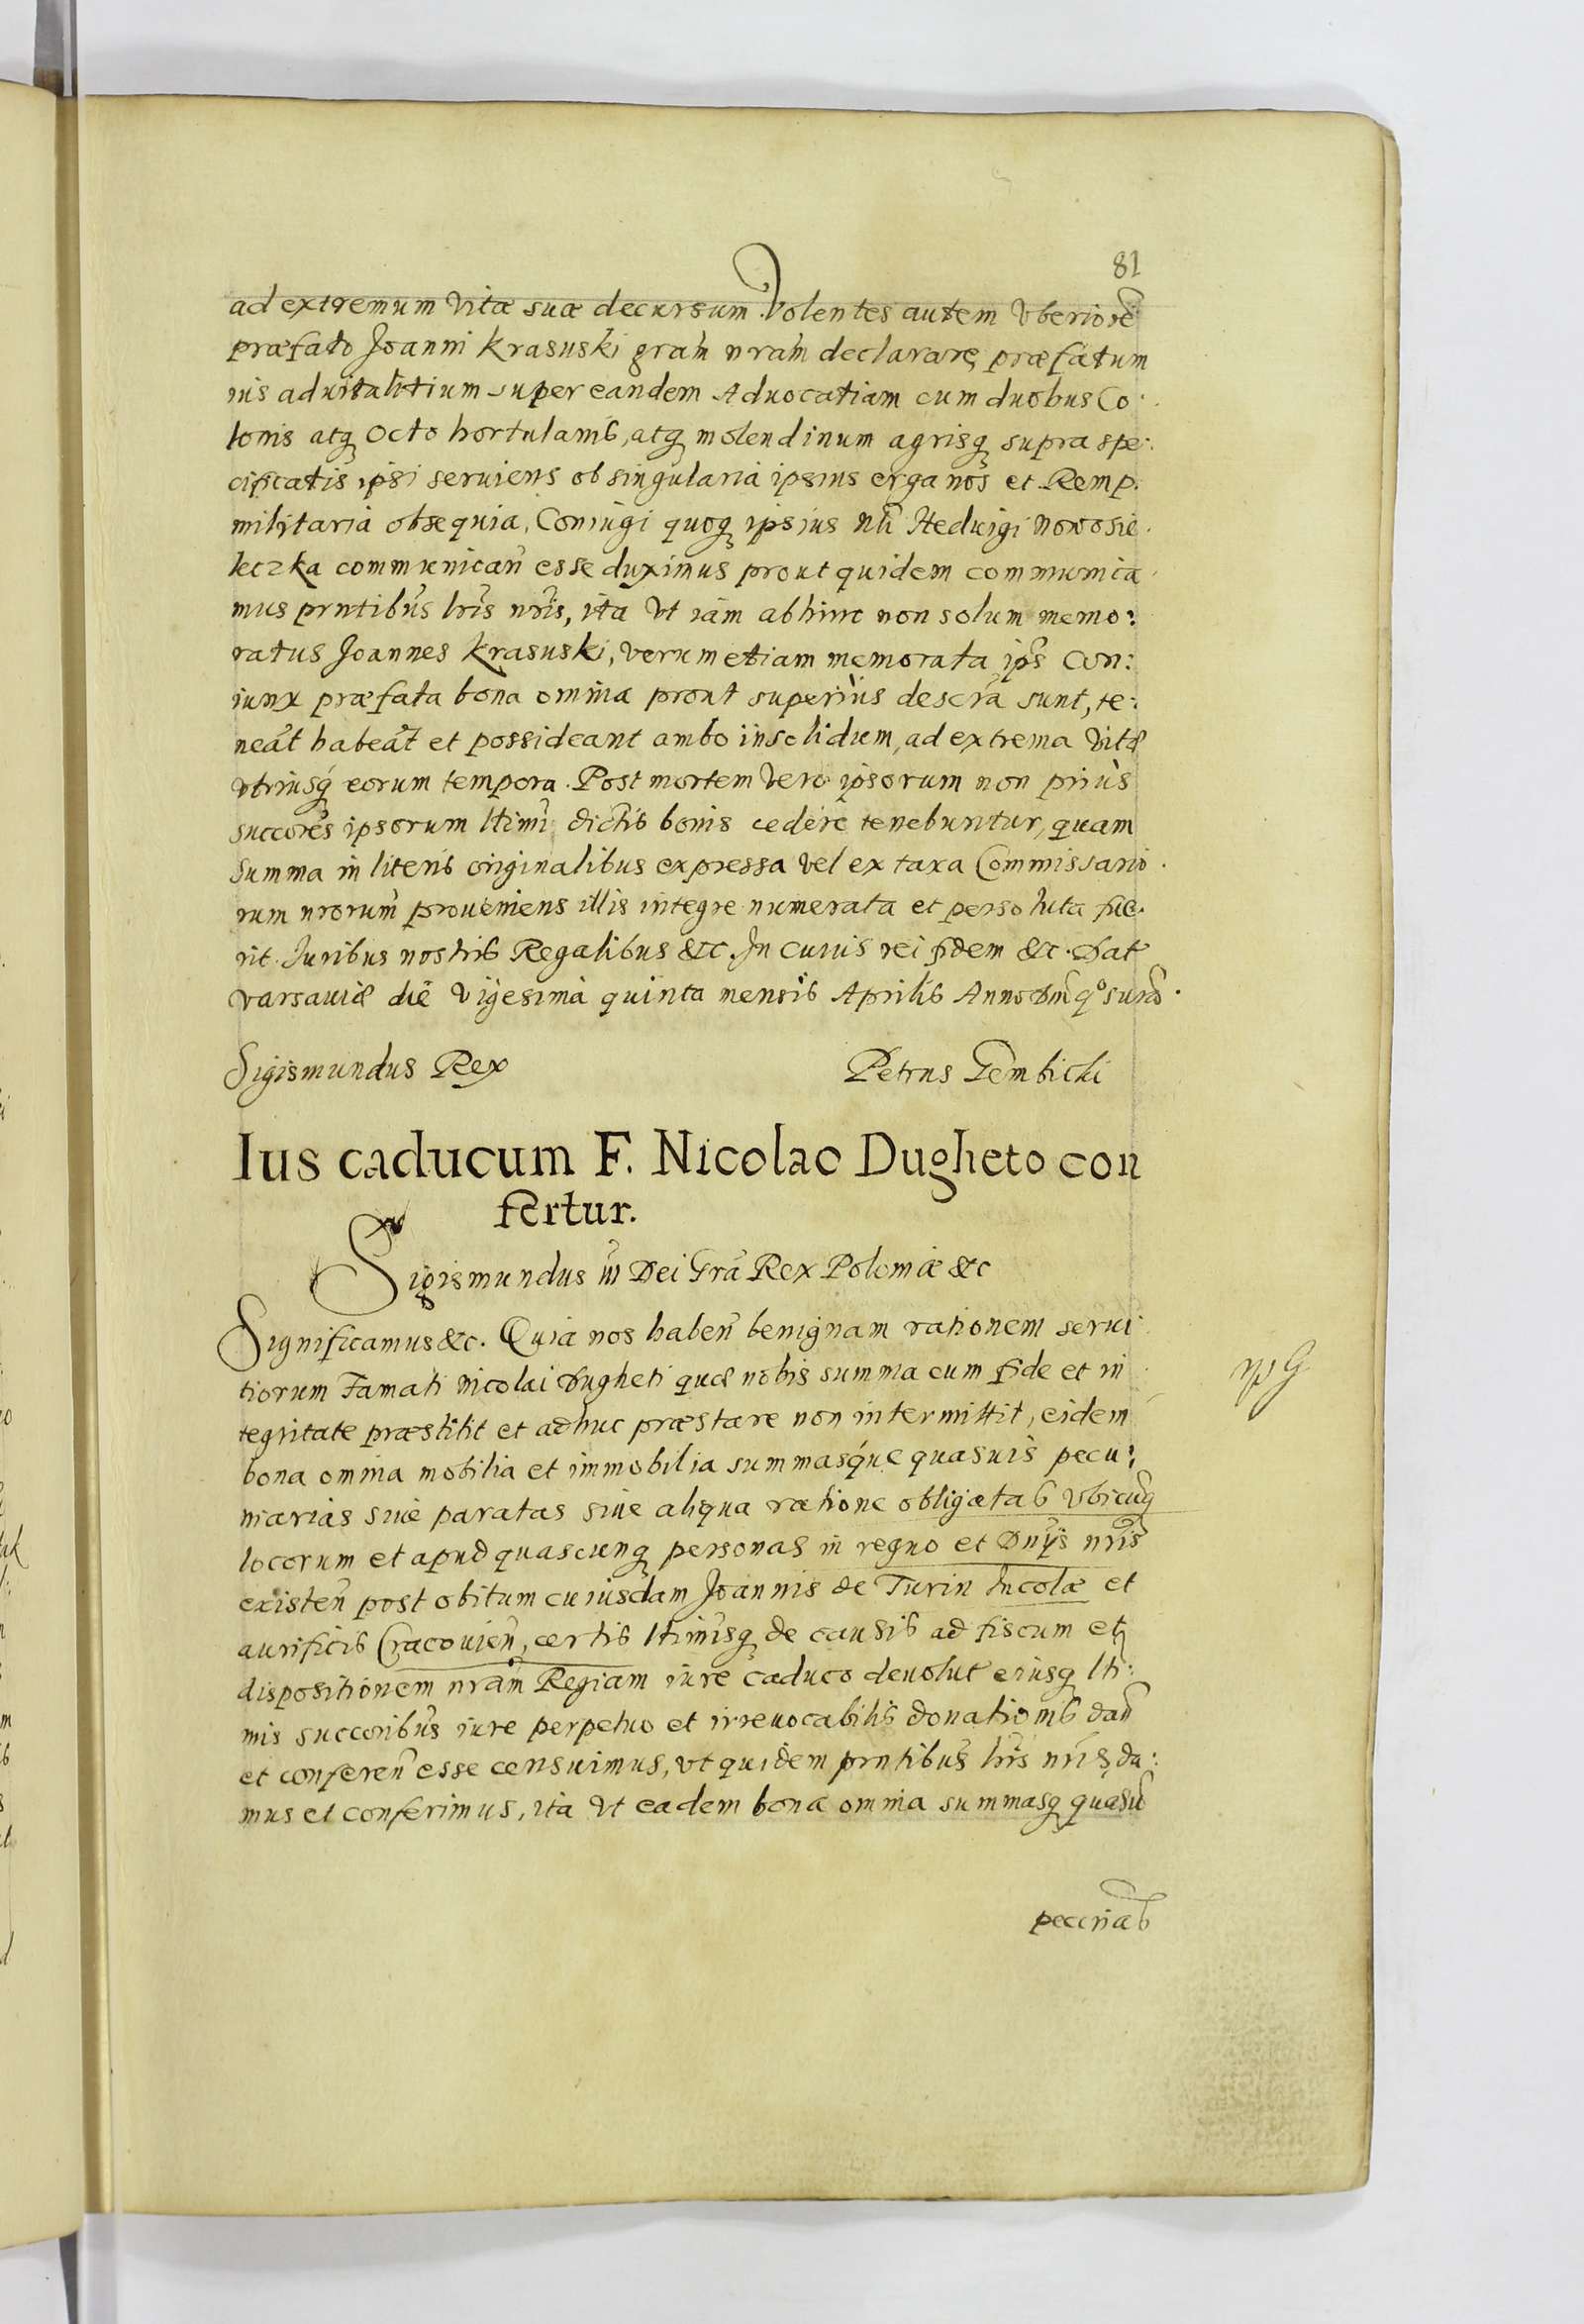 81
ad extremum vitæ suæ decursum. Volentes autem vberiorẽ
præfato Joanni Krasuski grãm nrãm declarare, præfatum
ius aduitalitium super eandem Aduocatiam cum duobus Co.
lonis atq octo hortulanis, atq molendinum agrisq supra spe:
cificatis ipsi seruiens ob singularia ipsius erga nos et Remp.
militaria obsequia, Coniugi quoq ipsius Nli Heduigi Nowosie.
leczka communicañ esse duximus prout quidem communica
mus prntibus lris nris, ita vt iam abhinc non solum memo:
ratus Joannes Krasuski, verum etiam memorata ips Con:
iunx præfata bona omnia prout superius descra sunt, te:
neãt habeãt et possideant ambo insolidum, ad extrema vitæ
vtriusq eorum tempora. Post mortem vero ipsorum non prius
succores ipsorum ltimi dictis bonis cedere tenebuntur, quam
summa in literis originalibus expressa vel ex taxa Commissario.
rum nrorum proueniens illis integre numerata et persoluta fue.
rit. Juribus nostris Regalibus &c. In cuius rei fidem &c. Dat
Varsauiæ die vigesima quinta mensis Aprilis Anno Dni qo supra.
Sigismundus Rex Petrus Gembicki
Ius caducum F. Nicolao Dugheto con
fertur.
Sigismundus III Dei Grã Rex Poloniæ &c
Significamus &c. Quia nos habeñ benignam rationem serui
tiorum Famati Nicolai Dugheti quæ nobis summa cum fide et in
tegritate præstitit et adhuc præstare non intermittit, eidem
bona omnia mobilia et immobilia summasque quasuis pecu:
niarias siue paratas siue aliqua ratione obligatas vbicunq
locorum et apud quascunq personas in regno et Dnijs nris
existeñ post obitum cuiusdam Joannis de Turin Incolæ et
aurificis Cracouieñ, certis ltimisq de causis ad fiscum et
dispositionem nrãm Regiam iure caduco deuolut eiusq lti:
mis succoribus iure perpetuo et irreuocabilis donationis dañ
et confereñ esse censuimus, vt quidem prntibus lris nris da:
mus et conferimus, ita vt eadem bona omnia summasq quasũ
pecunias